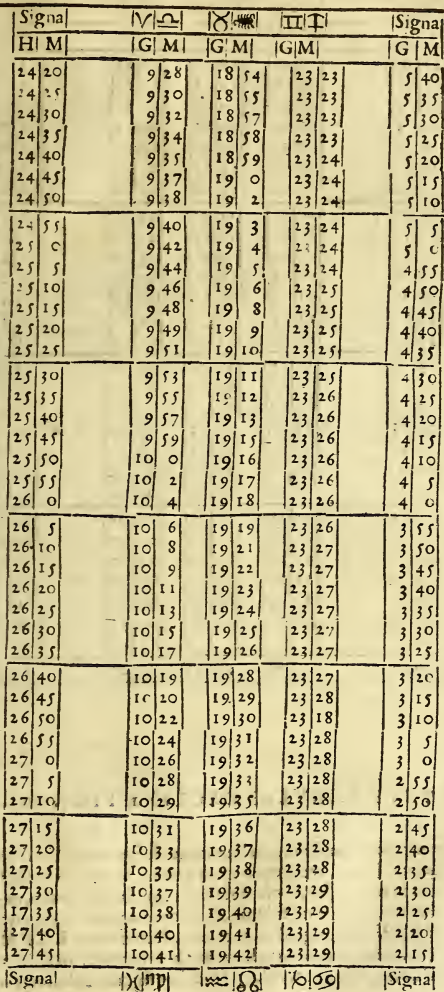 Signa ♈ ♎ ♉ ♏ ♊ ♐ Signa
H M G M G M G M G M
24 20 9 28 18 54 23 23 5 40
24 25 9 30 18 55 23 23 5 35
24 30 9 32 18 57 23 23 5 30
24 35 9 34 18 58 23 23 5 25
24 40 9 35 18 59 23 24 5 20
24 45 9 37 19 0 23 24 5 15
24 50 9 38 19 2 23 24 5 10
24 55 9 40 19 3 23 24 5 5
25 0 9 42 19 4 23 24 5 0
25 5 9 44 19 5 23 24 4 55
25 10 9 46 19 6 23 25 4 50
25 15 9 48 19 8 23 25 4 45
25 20 9 49 19 9 23 25 4 40
25 25 9 51 19 10 23 25 4 35
25 30 9 53 19 11 23 25 4 30
25 35 9 55 19 12 23 26 4 25
25 40 9 57 19 13 23 26 4 20
25 45 9 59 19 15 23 26 4 15
25 50 10 0 19 16 23 26 4 10
25 55 10 2 19 17 23 26 4 5
26 0 10 4 19 18 23 26 4 0
26 5 10 6 19 19 23 26 3 55
26 10 10 8 19 21 23 27 3 50
26 15 10 9 19 22 23 27 3 45
26 20 10 11 19 23 23 27 3 40
26 25 10 13 19 24 23 27 3 35
26 30 10 15 19 25 23 27 3 30
26 35 10 17 19 26 23 27 3 25
26 40 10 19 19 28 23 27 3 20
26 45 10 20 19 29 23 28 3 15
26 50 10 22 19 30 23 18 3 10
26 55 10 24 19 31 23 28 3 5
27 0 10 26 19 32 23 28 3 0
27 5 10 28 19 33 23 28 2 55
27 10 10 29 19 35 23 28 2 50
27 15 10 31 19 36 23 28 2 45
27 20 10 33 19 37 23 28 2 40
27 25 10 35 19 38 23 28 2 35
27 30 10 37 19 39 23 29 2 30
17 35 10 38 19 40 23 29 2 25
27 40 10 40 19 41 23 29 2 20
27 45 10 41 19 42 23 29 2 15
Signa ♓ ♍ ♒ ♌ ♑ ♋ Signa